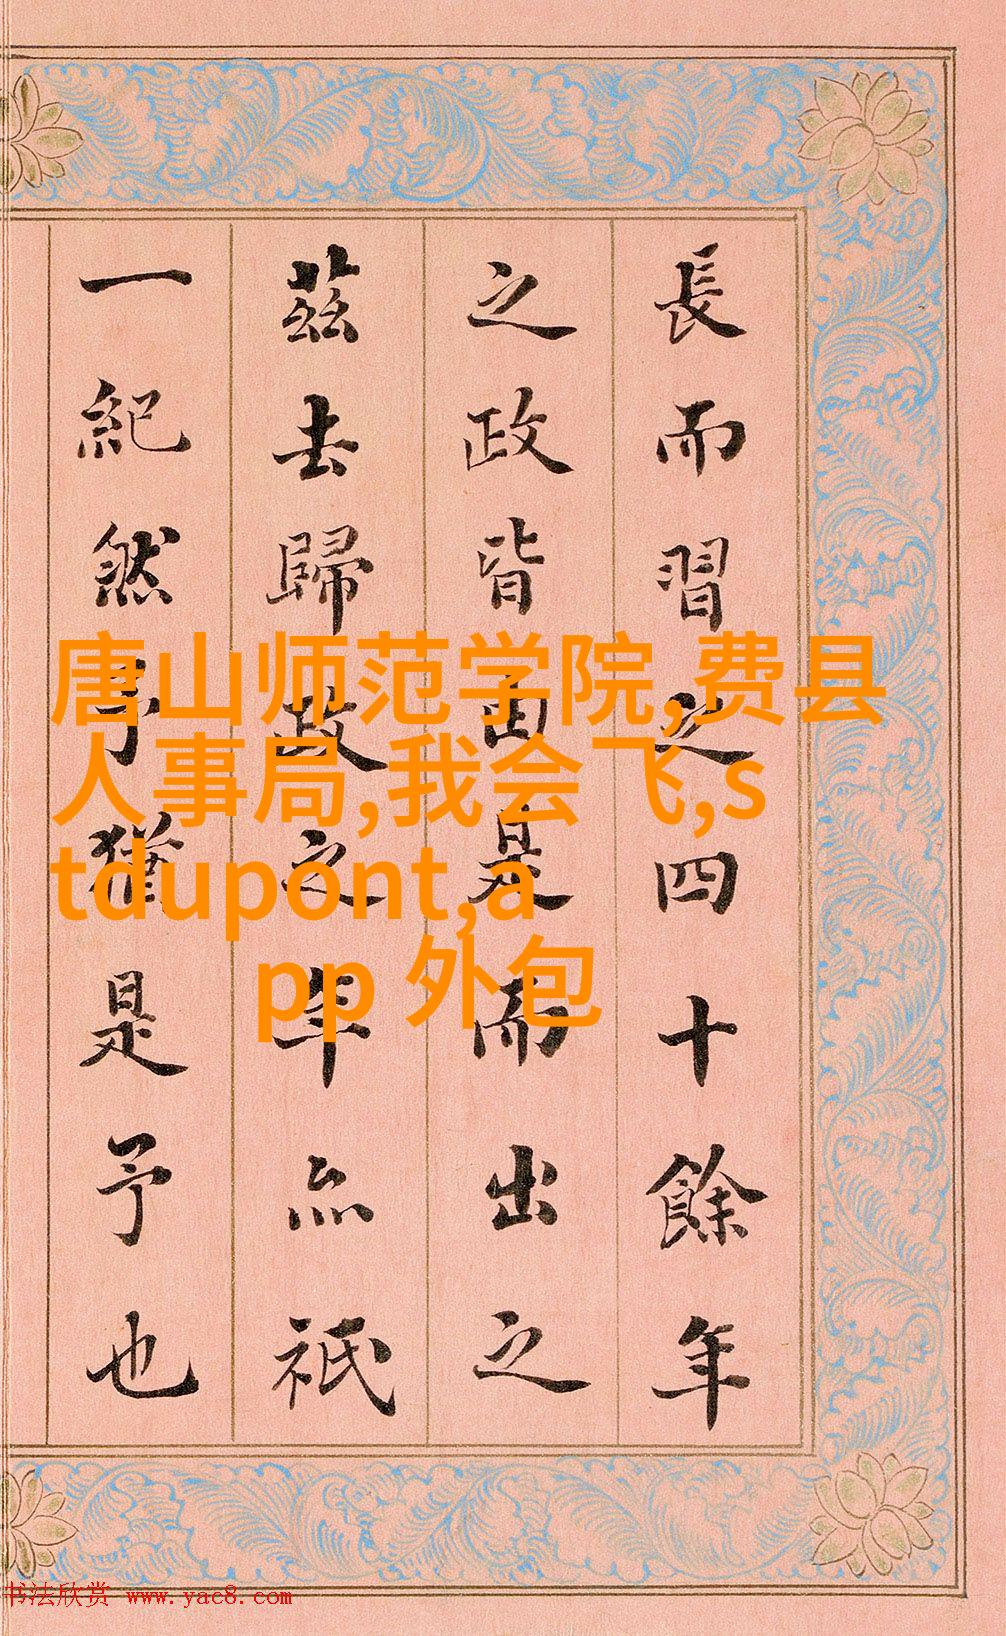 長而習之四十餘年
之政皆由是而出之
茲去歸政之年亦祇
一紀然予猶是予也
唐山师范学院,费县
人事局,我会飞,s
tdupont,a
pp 外包
书法欣赏 www.yac8.com